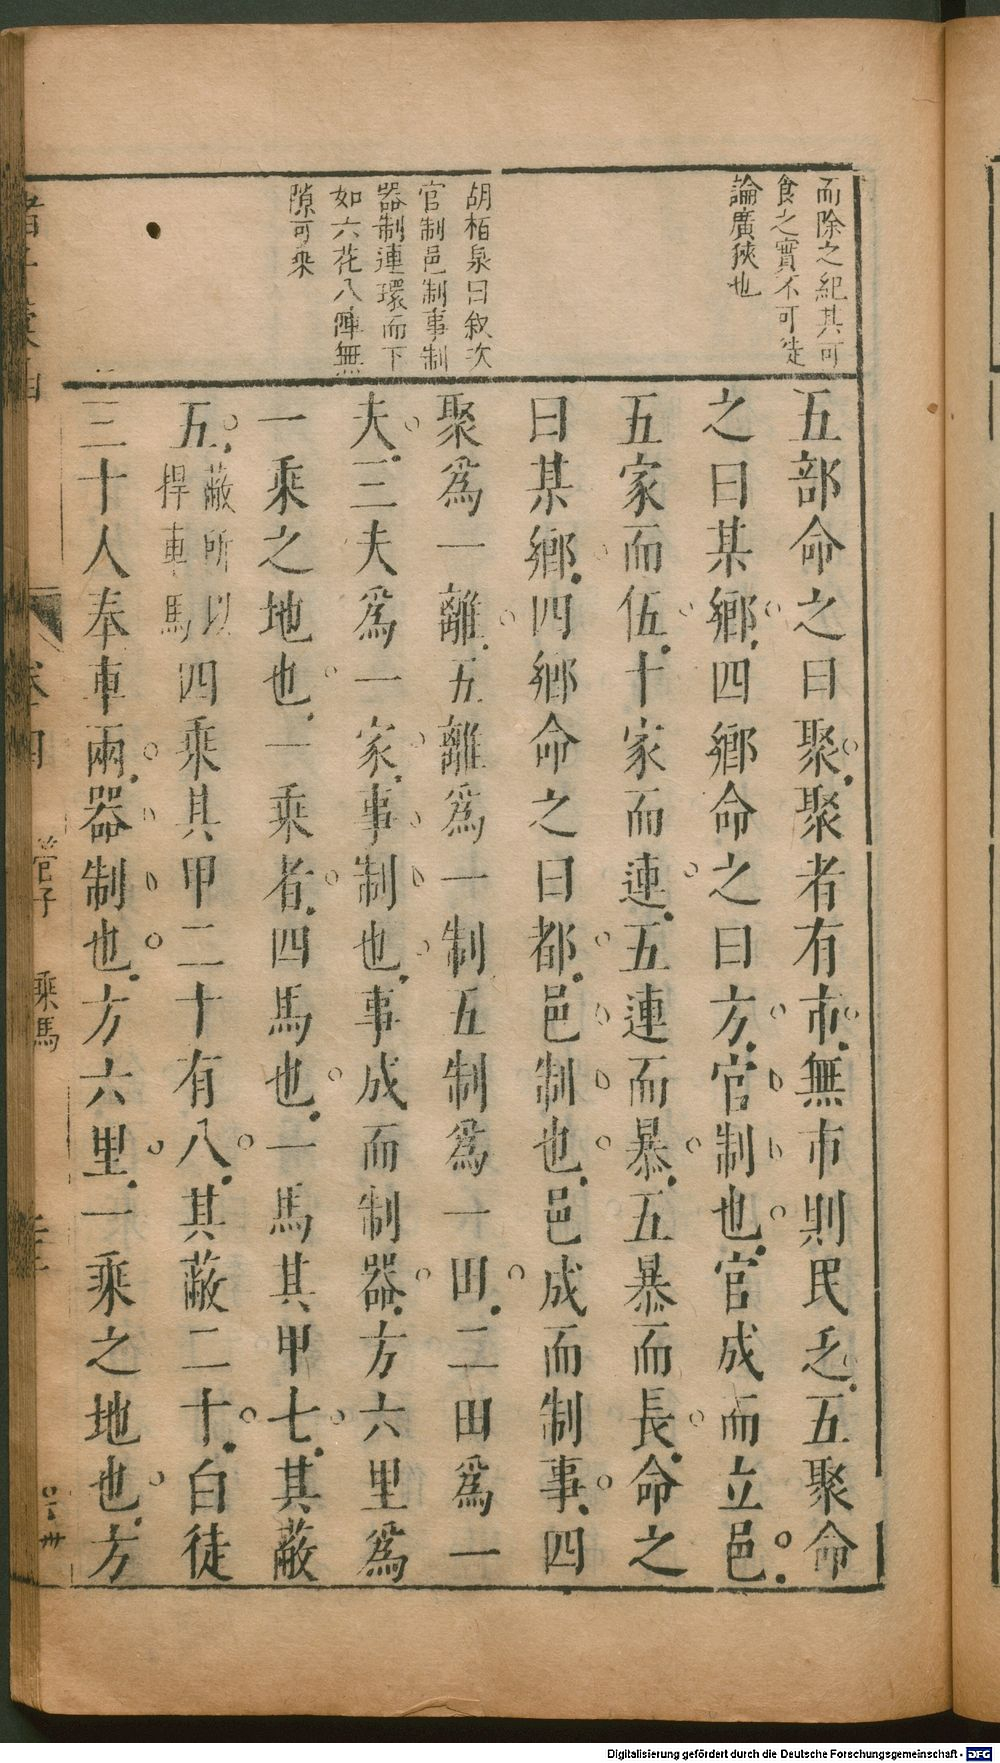 而除之紀其可
食之實不可徒
論廣狹也
胡栢泉曰叙次
官制邑制事制
器制連環而下
如六花八陣無
隙可乘
五部命之曰聚聚者有市無市則民乏五聚命
之曰某鄉四鄉命之曰方官制也官成而立邑
五家而伍十家而連五連而暴五暴而長命之
曰某鄉四鄉命之曰都邑制也邑成而制事四
聚爲一離五離爲一制五制爲一田二田爲一
夫三夫爲一家事制也事成而制器方六里爲
一乘之地也一乘者四馬也一馬其甲七其蔽
五蔽所以捍車馬四乘其甲二十有八其蔽二十白徒
三十人奉車兩器制也方六里一乘之地也方
管子 乘馬
Digitalisierung gefördert durch die Deutsche Forschungsgemeinschaft - DFG